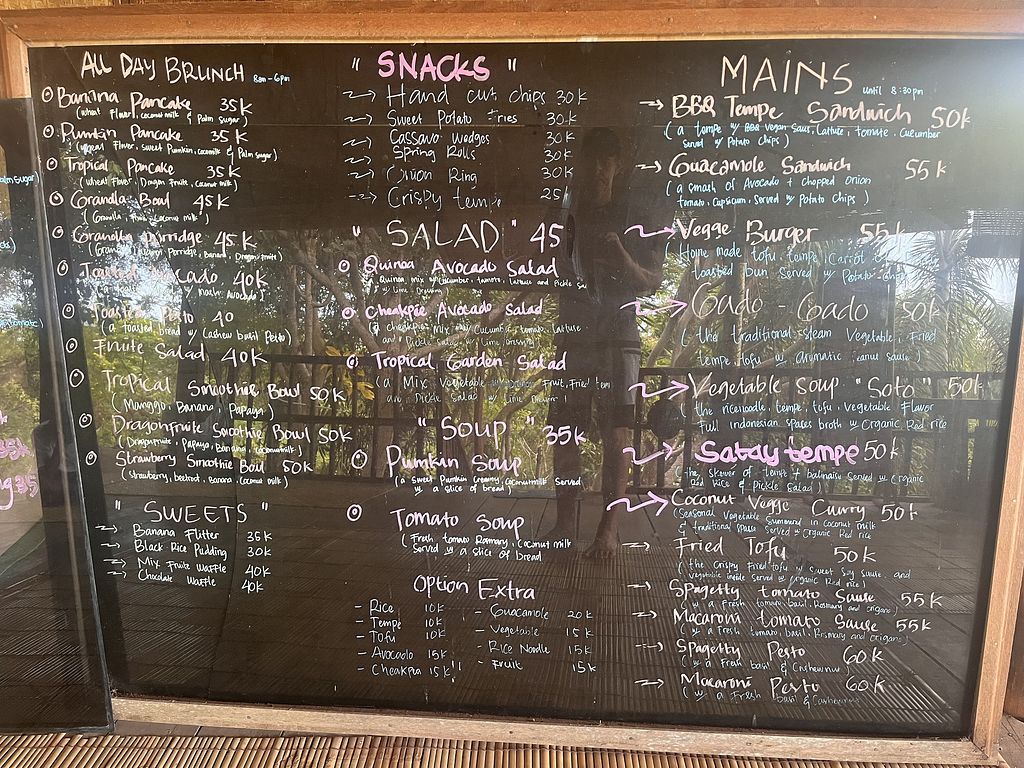 ALL DAY BRUNCH 8am - 6pm
Banana Pancake 35K
(wheat flour, coconut milk & Palm Sugar)
Pumkin Pancake 35K
(wheat Flour, sweet Pumkin, Coconut milk & Palm sugar)
Tropical Pancake 35K
(Wheat Flour, Dragon Fruite, Coconut milk)
Granolla Bowl 45K
Granolla porridge 45K
Avocado 40K
Toasted Pesto 40
(a toasted bread w/ Cashew basil Pesto)
Fruite Salad 40K
Tropical Smoothie Bowl 50K
(Manggo, Banana, Papaya)
Dragonfruite Smoothie Bowl 50K
(Dragonfruite, Papaya, Banana, Coconutmilk)
Strawberry Smoothie Bowl 50K
(strawberry, beetroot, Banana, Coconut milk)
" SWEETS "
Banana Flitter 35K
Black Rice Pudding 30K
Mix Fruite Waffle 40K
Chocolate Waffle 40K
" SNACKS "
Hand cut chips 30K
Sweet Potato Fries 30K
Cassava Wedges 30K
Spring Rolls 30K
Onion Ring 30K
Crispy tempe 25K
" SALAD " 45
Quinoa Avocado Salad
Cheakpie Avocado Salad
Tropical Garden Salad
" SOUP " 35K
Pumkin Soup
(a sweet Pumkin Creamy, Coconutmilk Served
w/ a slice of bread)
Tomato Soup
(Fresh tomato Rosmary, Coconut milk
Served w/ a slice of bread
Option Extra
- Rice 10K
- Tempe 10K
- Tofu 10K
- Avocado 15K
- Cheakpea 15K
- Guacamole 20K
- Vegetable 15K
- Rice Noodle 15K
- Fruit 15K
MAINS until 8:30pm
BBQ Tempe Sandwich 50K
(a tempe w/ BBQ Vegan Saus, Lattuce, tomate, Cucumber
Served w/ Potato Chips)
Guacamole Sandwich 55K
(a smash of Avocado + Chopped Onion
Tomato, Capsicum, Served w/ Potato Chips)
Vegge Burger 55K
(Home made tofu, tempe, Carrot
toasted bun Served w/ Potato chips
Gado - Gado 50K
(the traditional steam Vegetable, Fried
tempe Tofu w/ arumatic Peanut sauce)
Vegetable Soup "Soto" 50K
(the ricenoodle, tempe, tofu, vegetable Flavor
Full indonesian spases broth w/ Organic Red rice
Satay tempe 50K
(the skewer of tempe & balinaise Served w/ Organic
Red Rice & Pickle Salad)
Coconut Vegge Curry 50K
(Seasonal Vegetable Summered in Coconut milk
& traditional spase Served w/ Organic Red rice
Fried Tofu 50K
(the crispy Fried tofu w/ Sweet Soy Sause, and
vegetable inside Served w/ Organic Red rice)
Spagetty tomato Sause 55K
(w/ a Fresh tomato, basil, Rosmary and origano)
Macaroni tomato Sause 55K
(w/ a Fresh tomato, basil, Rosmary and origano)
Spagetty Pesto 60K
(w/ a Fresh basil & Cashewnut
Macaroni Pesto 60K
(w/ a Fresh basil &